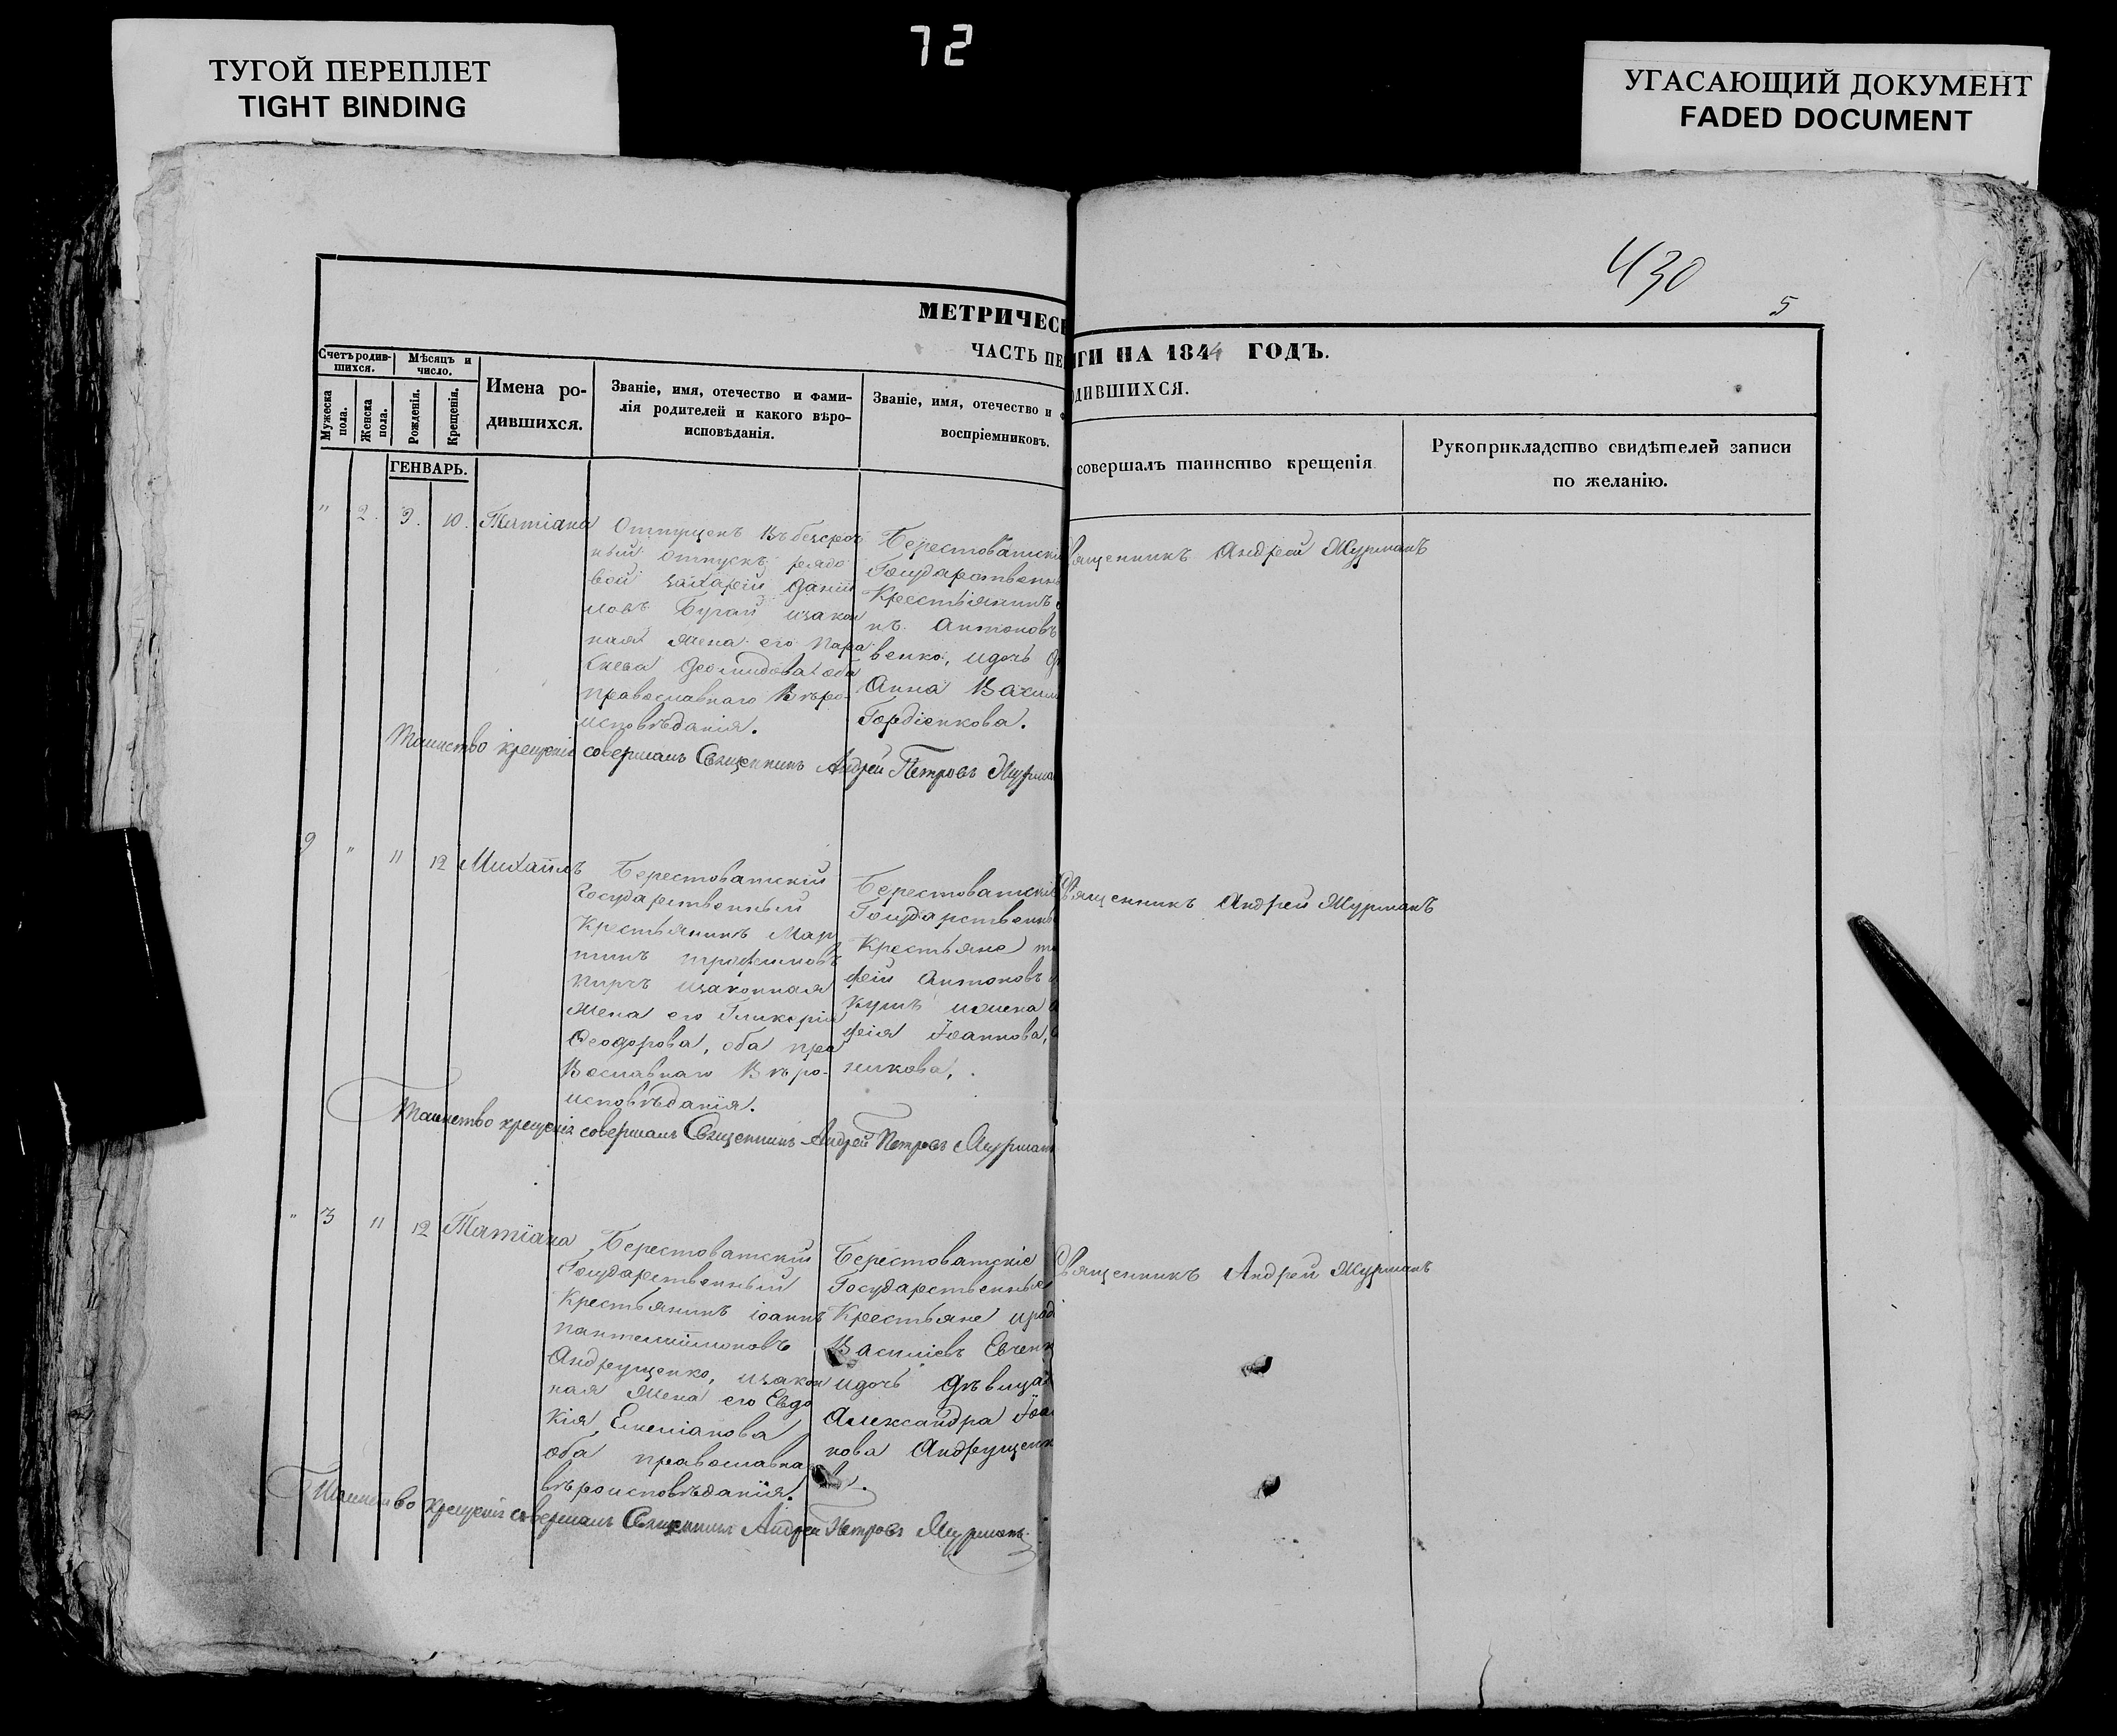 72
ТУГОЙ ПЕРЕПЛЕТ
TIGHT BINDING
УГАСАЮЩИЙ ДОКУМЕНТ
FADED DOCUMENT
430
5
МЕТРИЧЕС
ГИ НА 1844 ГОДЪ.
ЧАСТЬ ПЕ
ДИВШИХСЯ.
Счетъ родив-
шихся.
Мѣсяцъ и
число.
Мужеска
пола.
Женска
пола.
Рожденія.
Крещенія.
Имена ро-
дившихся.
Званіе, имя, отечество и фами-
лія родителей и какого вѣро-
исповѣданія.
Званіе, имя, отечество и ф
воспріемниковъ.
совершалъ таинство крещенія
Рукоприкладство свидѣтелей записи
по желанію.
ГЕНВАРЬ.
" 2. 9. 10. Татіана
Отпущенъ въ безсроч
ный отпускъ рядо
вой Захарій Даніи
ловъ Бугай изакон
ная жена его Пара
скева Діомидова оба
православнаго Вѣро-
исповѣданія.
Берестоватскі
Государственн
Крестіянинъ
нъ Антоновъ
венко, идочь
Анна Васил
Гордіенкова.
вященникъ Андрей Мурманъ
Таинство крещенія совершалъ Священникъ Андрей Петровъ Мурма
9 " 11 12 Михаилъ
Берестоватскій
Государственный
Крестьянинъ Мар
тинъ Трофимовъ
изаконная
жена его Гликерія
Феодорова, оба пра
Вославнаго Вѣро-
исповѣданія.
Берестоватскіе
Государственны
Крестьяне
фей Антоновъ
Кушъ ижена
фія Іоаннова,
никова,
Священникъ Андрей Мурманъ
Таинство крещенія совершалъ Священникъ Андрей Петровъ Мурман
" 3 11 12 Татіана
Берестоватскій
Государственный
Крестьянинъ Іоаннъ
Пантелиимоновъ
Андрущенко, изакон
ная жена его Евдо
кія Емеліанова
оба православна
вѣроисповѣданія.
Берестоватскіе
Государственные
Крестьяне
Василіевъ Евченк
идочь Дѣвица
Александра Іоа
нова Андрущенк
Священникъ Андрей Мурманъ
Таинство крещенія совершалъ Священникъ Андрей Петровъ Мурманъ.